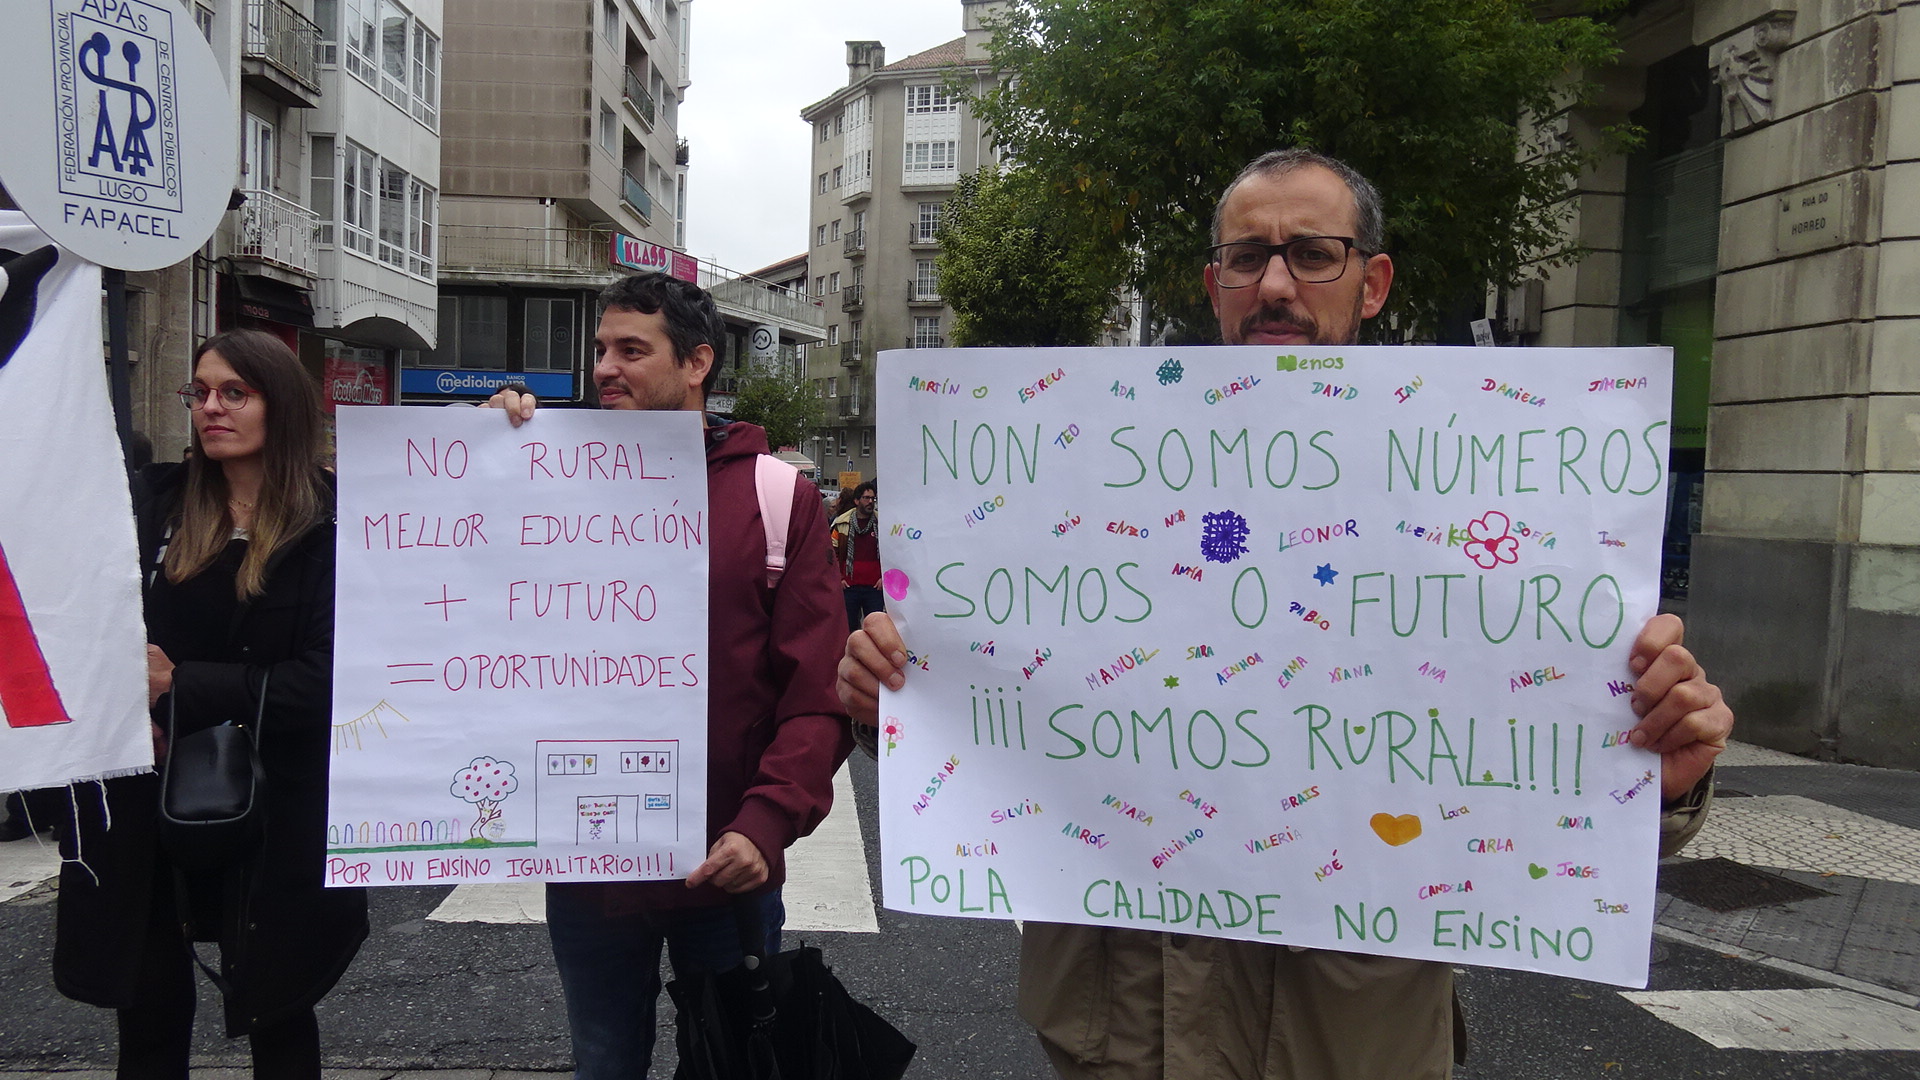 APAs
FEDERACIÓN PROVINCIAL
DE CENTROS PÚBLICOS
LUGO
FAPACEL
KLASS
BANCO
mediolanum
moda
RUA DO
HORREO
NO RURAL:
MELLOR EDUCACIÓN
+ FUTURO
= OPORTUNIDADES
POR UN ENSINO IGUALITARIO!!!!
Menos
MARTÍN ESTRELA ADA GABRIEL DAVID IAN DANIELA JIMENA
NON TEO SOMOS NÚMEROS
NICO HUGO XOÁN ENZO NOA LEONOR SOFÍA
ANTÍA
SOMOS O PABLO FUTURO
SAÚL UXÍA ALDÁN MANUEL SARA AINHOA EMMA XIANA ANA ANGEL
¡¡¡¡SOMOS RURAL!!!!
ALASSANE SILVIA AARÓN NAYARA EDAHI EMILIANO BRAIS VALERIA NOÉ Lara CARLA LAURA
ALICIA CANDELA JORGE
Itzae
POLA CALIDADE NO ENSINO